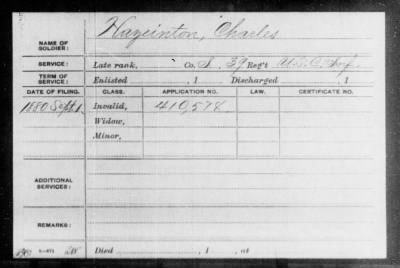 NAME OF SOLDIER: Hazeinton, Charles
SERVICE: Late rank, Co. 39 Reg't U.S.C. Inf.
TERM OF SERVICE: Enlisted , 1 Discharged , 1
DATE OF FILING. CLASS. APPLICATION NO. LAW. CERTIFICATE NO.
1880 Sept 1 Invalid, 410,574
Widow,
Minor,
ADDITIONAL SERVICES:
REMARKS:
Died , 1 , at